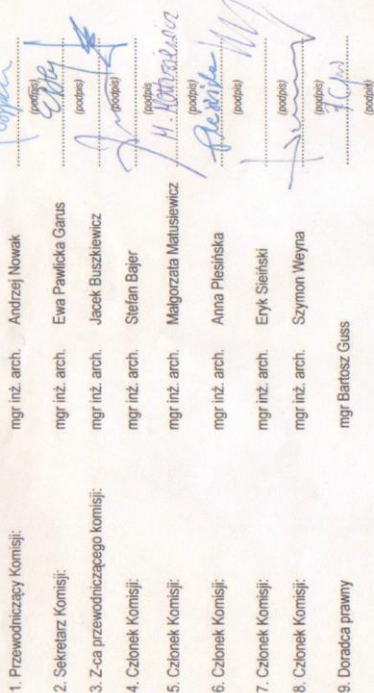 1. Przewodniczący Komisji: mgr inż. arch. Andrzej Nowak
(podpis)
2. Sekretarz Komisji: mgr inż. arch. Ewa Pawlicka Garus
(podpis)
3. Z-ca przewodniczącego komisji: mgr inż. arch. Jacek Buszkiewicz
(podpis)
4. Członek Komisji: mgr inż. arch. Stefan Bajer
(podpis)
5. Członek Komisji: mgr inż. arch. Małgorzata Matusiewicz M. Matusiewicz
(podpis)
6. Członek Komisji: mgr inż. arch. Anna Plesińska
(podpis)
7. Członek Komisji: mgr inż. arch. Eryk Sieiński
(podpis)
8. Członek Komisji: mgr inż. arch. Szymon Weyna
(podpis)
9. Doradca prawny mgr Bartosz Guss